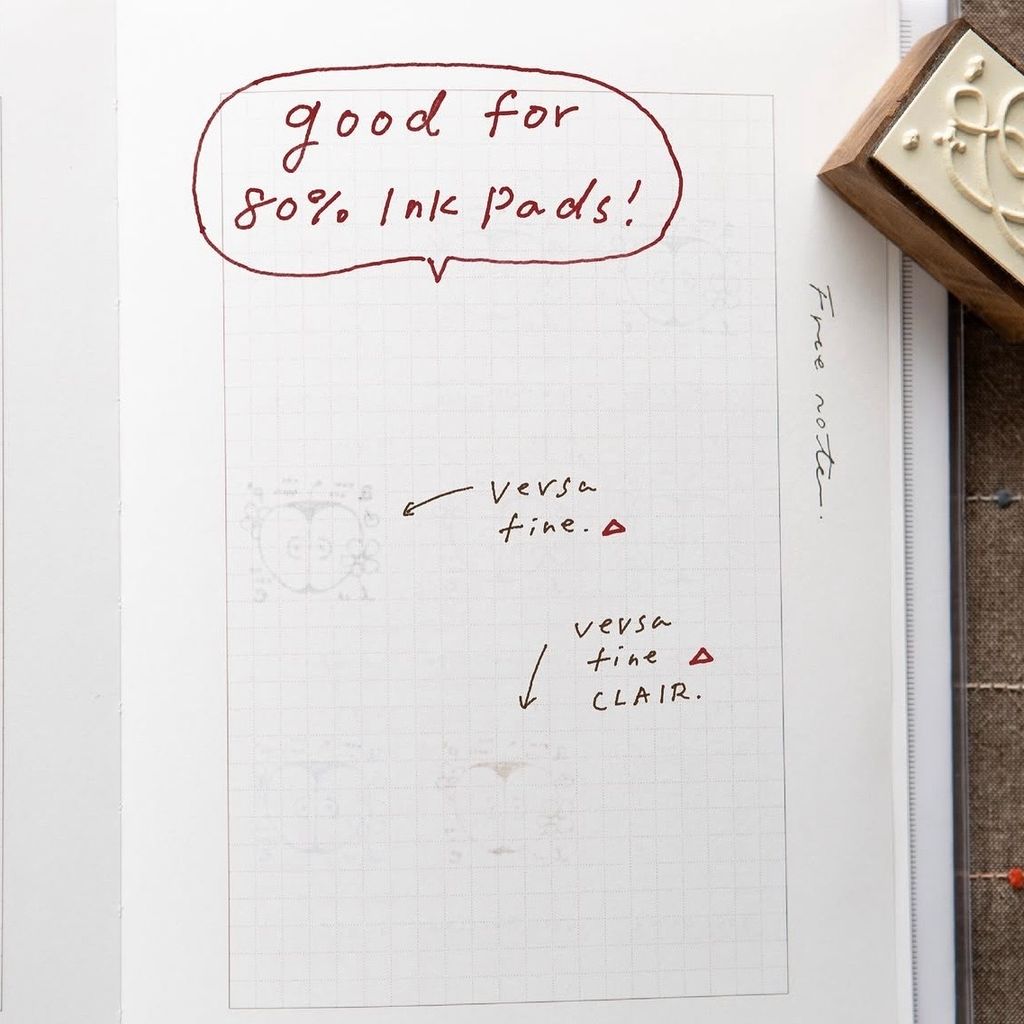 good for
80% Ink Pads!
versa
fine.
versa
fine
CLAIR.
Free note